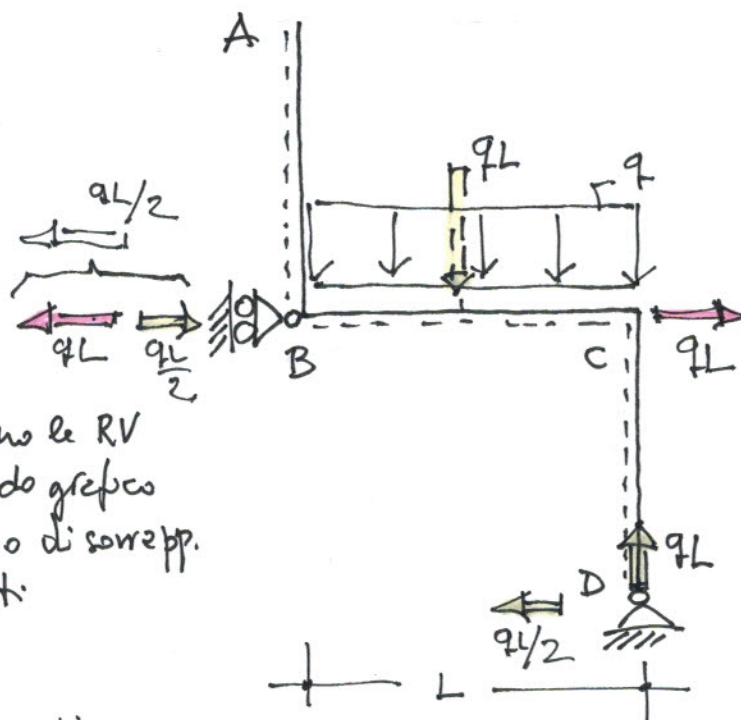 A
qL
q
qL/2
qL
qL/2
B
C
qL
no le RV
do grafico
o di sovrapp.
ti
D
qL
qL/2
L